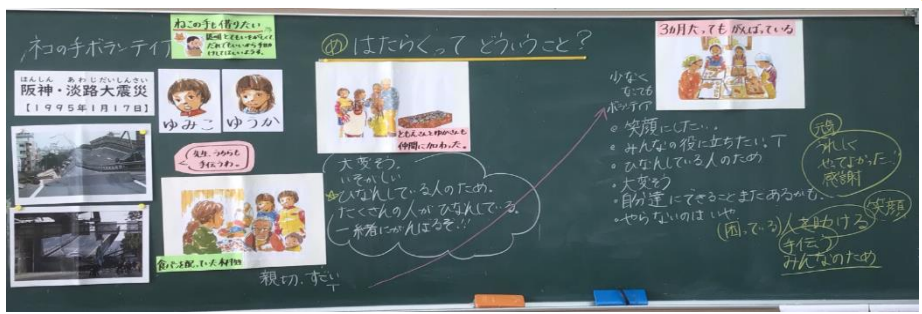 ネコの手ボランティア
ねこの手も借りたい
阪神・淡路大震災
はんしん あわじだいしんさい
【1995年1月17日】
ゆみこ
ゆうか
先生、うちらも
手伝うわ。
食パンを配っていた
親切、すごい
T
め はたらくって どういうこと?
ともえさんとゆかさんも
仲間に加わった。
大変そう。
いそがしい
ひなんしている人のため。
たくさんの人がひなんしている。
一緒にがんばるぞ!!
3カ月たってもがんばっている
少なく
なっても
ボランティア
笑顔にしたい。
みんなの役に立ちたい。T
ひなんしている人のため
大変そう
自分達にできることまだあるかも。
やらないのはいや
うれしく
やってよかった!
感謝
笑顔
(困っている)人を助ける
手伝う
みんなのため